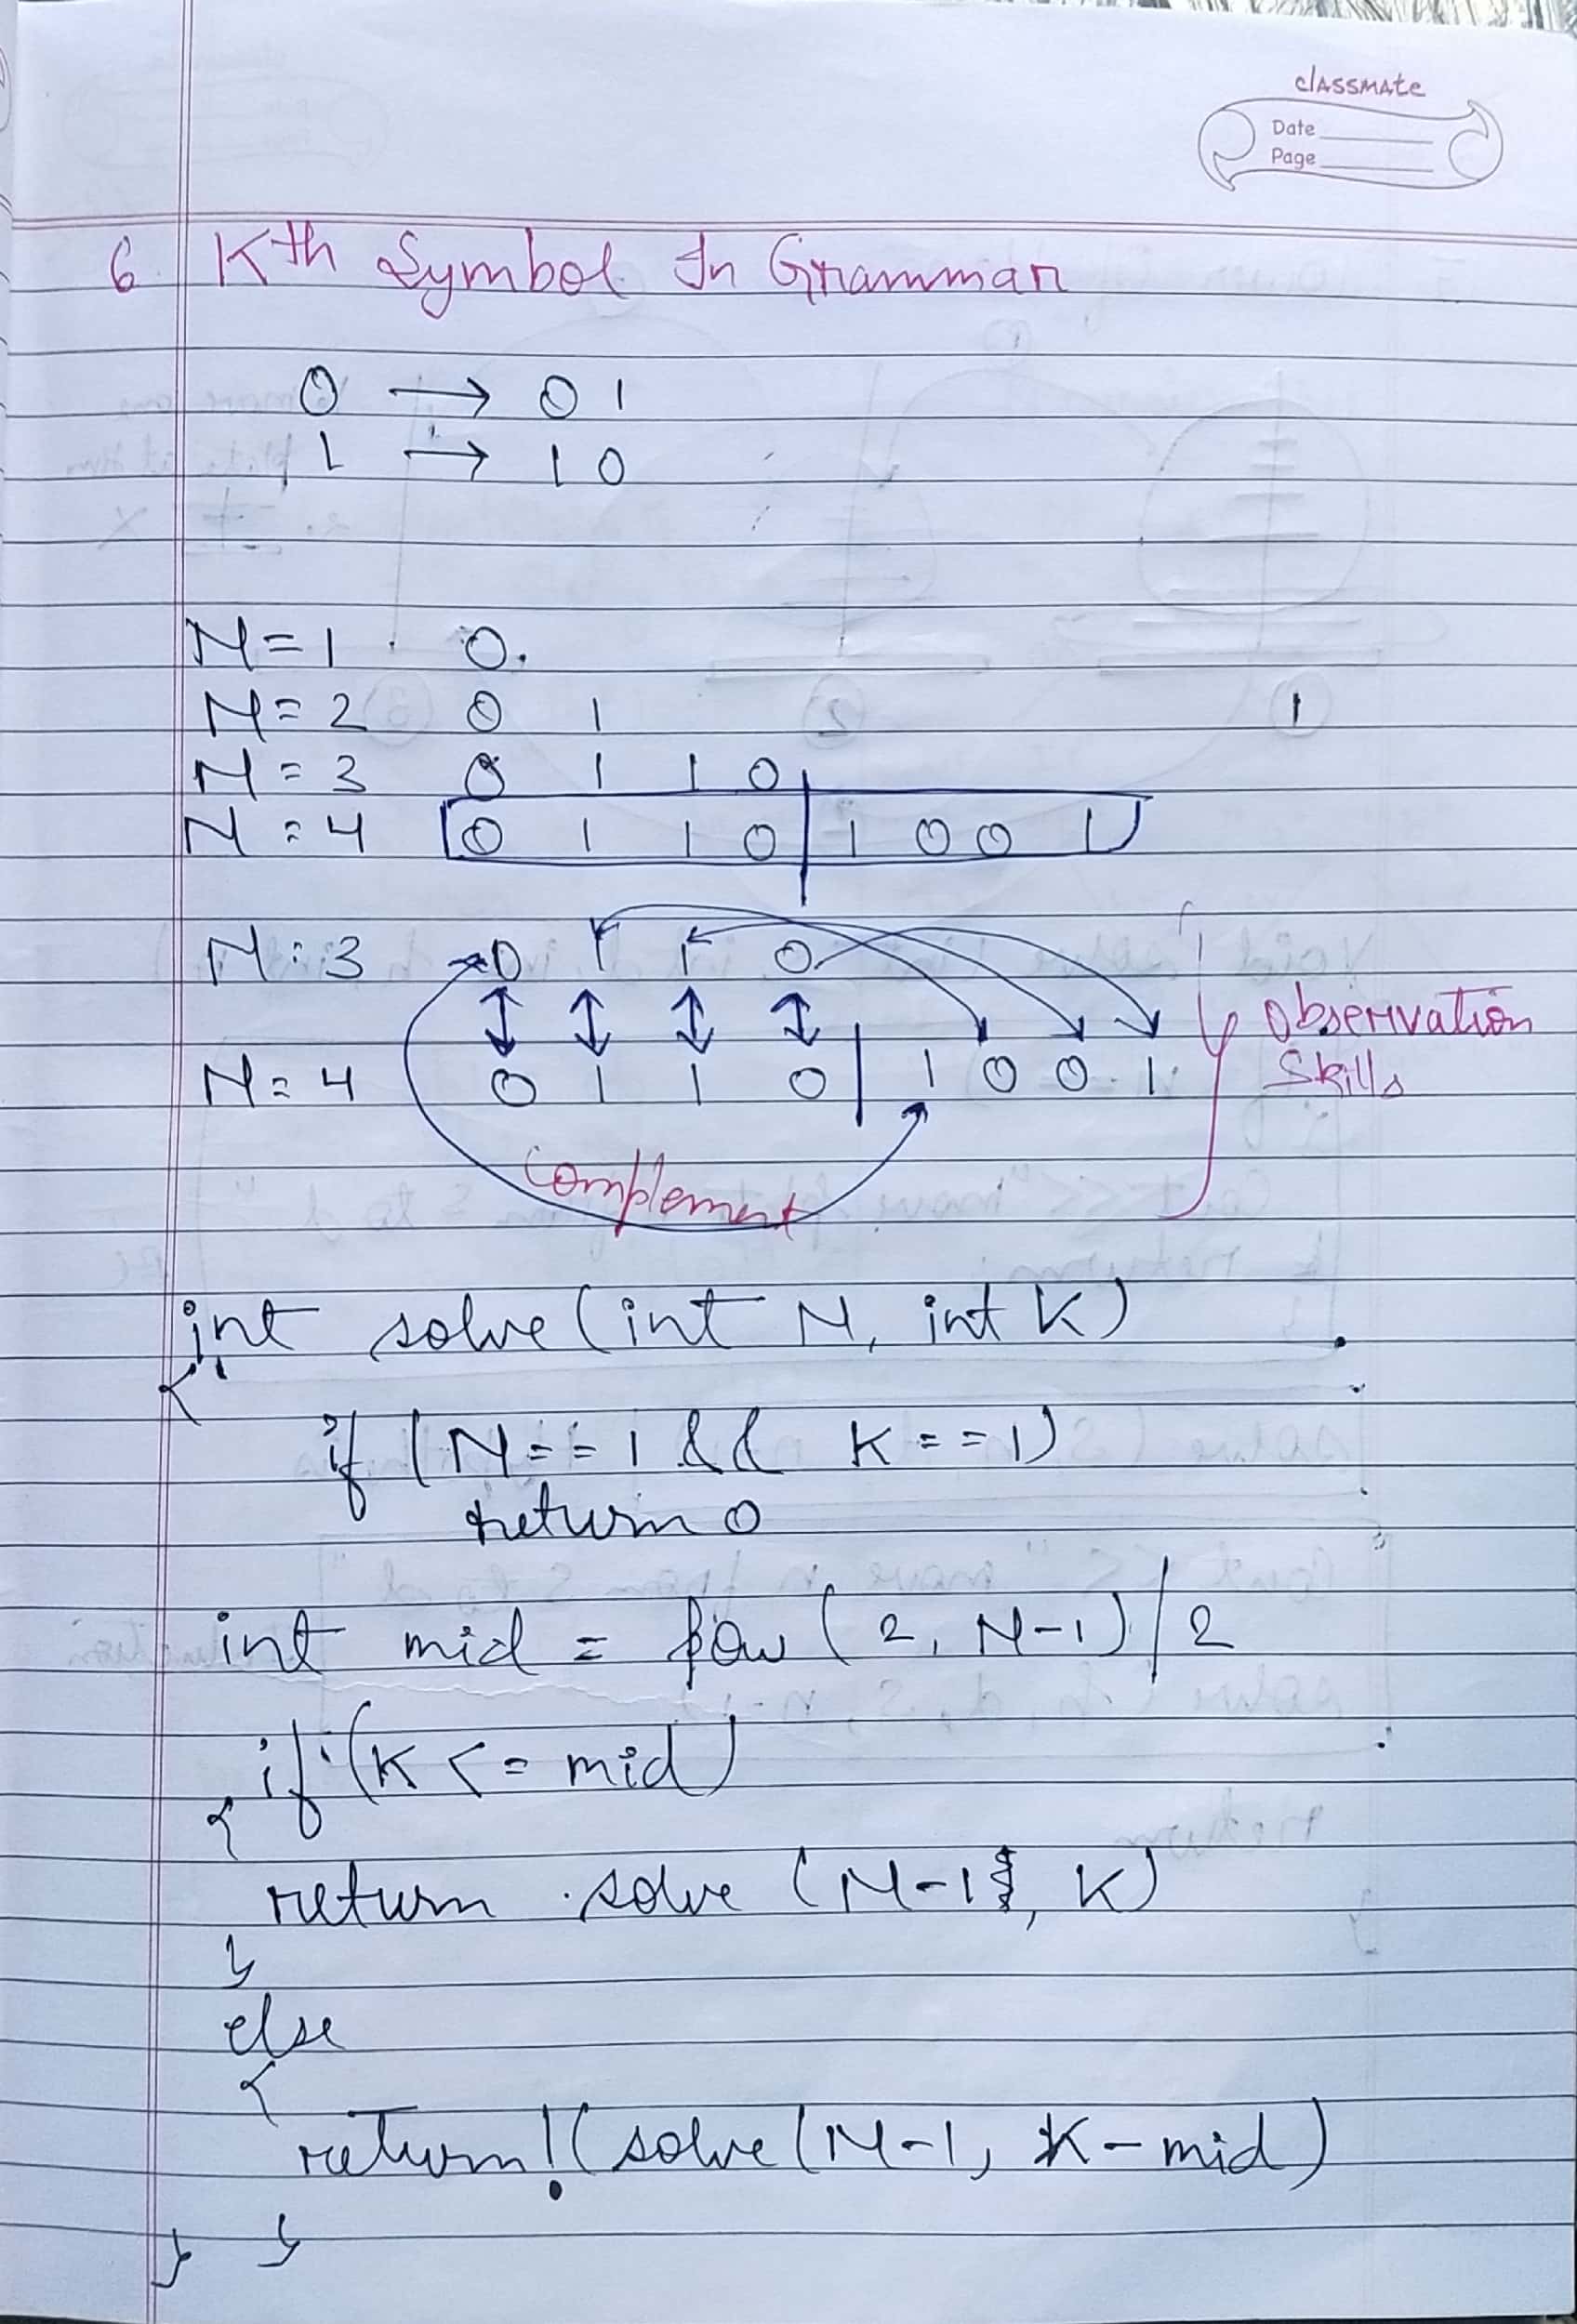 classmate
Date
Page
6 Kth Symbol In Grammar
0 → 0 1
1 → 1 0
N = 1 0.
N = 2 0 1 1
N = 3 0 1 1 0
N = 4 0 1 1 0 | 1 0 0 1
N = 3 0 1 1 0
Observation
N = 4 0 1 1 0 | 1 0 0 1 Skills
Complement
int solve (int N, int K)
{
if (N == 1 && K == 1)
return 0
int mid = pow (2, N-1) / 2
if (K <= mid)
{
return solve (N-1, K)
}
else
{
return !(solve (N-1, K - mid)
} }